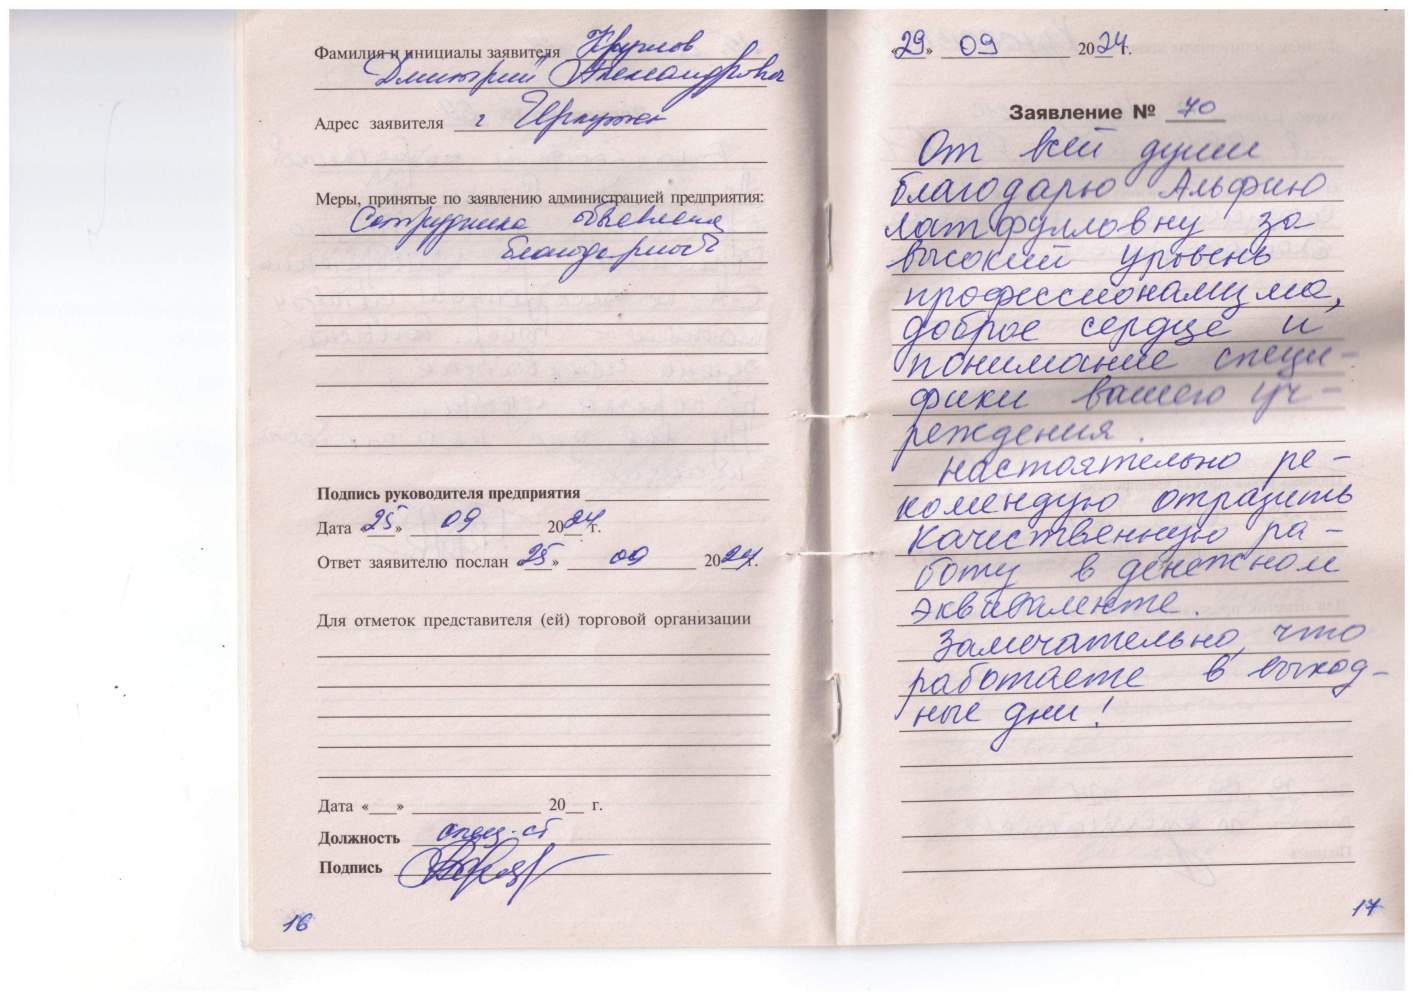 Фамилия и инициалы заявителя Круглов
Дмитрий Александрович
Адрес заявителя г Иркутск
Меры, принятые по заявлению администрацией предприятия:
Сотруднику объявлена
благодарность
Подпись руководителя предприятия
Дата «25» 09 2024 г.
Ответ заявителю послан «25» 09 2024 г.
Для отметок представителя (ей) торговой организации
Дата «___» ______ 20__ г.
Должность спец. ст
Подпись
16
«29» 09 2024г.
Заявление № 70
От всей души
благодарю Альфию
Латфулловну за
высокий уровень
профессионализма,
доброе сердце и
понимание специ-
фики вашего уч-
реждения.
Настоятельно ре-
комендую отразить
качественную ра-
боту в денежном
эквиваленте.
Замечательно, что
работаете в выход-
ные дни!
17